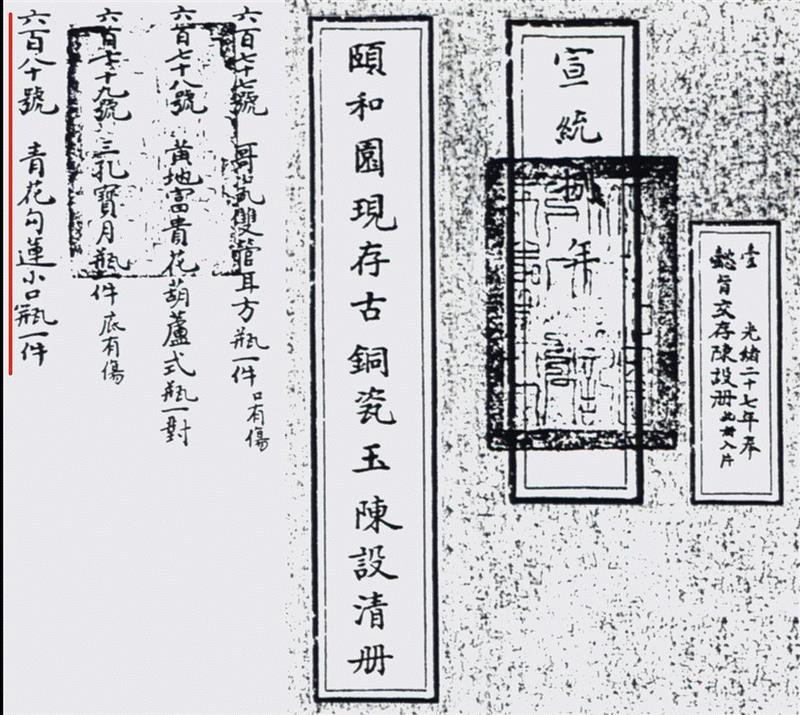 壹 光緒二十七年奉
懿旨交存陳設册
宣統年
頤和園現存古銅瓷玉陳設清册
六百七十七號 哥瓷雙管耳方瓶一件 口有傷
六百七十八號 黃地富貴花葫蘆式瓶一對
六百七十九號 三孔寶月瓶一件 底有傷
六百八十號 青花勾蓮小口瓶一件